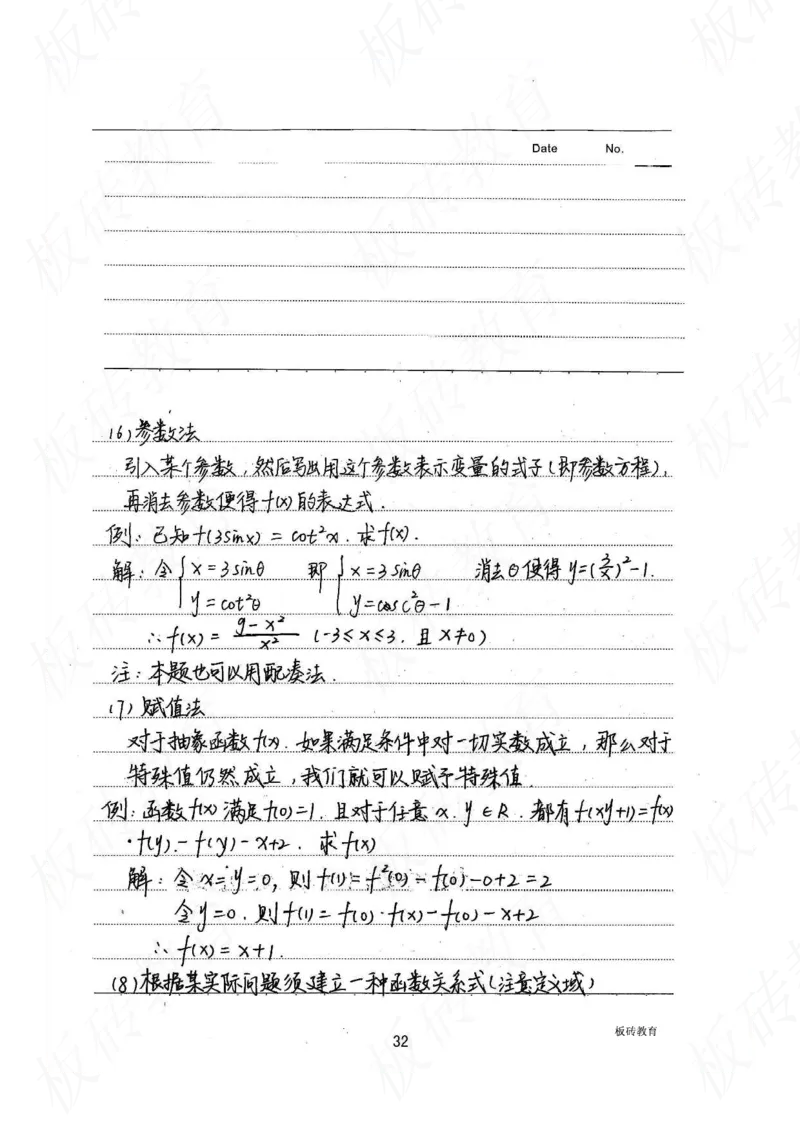 Date No.
(6)参数法
引入某个参数,然后写出用这个参数表示变量的式子(即参数方程),
再消去参数便得f(x)的表达式.
例:已知f(3sinx)=cot²x.求f(x).
解:令{x=3sinθ 即{x=3sinθ 消去θ便得y=(3/x)²-1.
y=cot²θ y=cosc²θ-1
∴f(x)=9-x²/x² (-3≤x≤3.且x≠0)
注:本题也可以用配凑法.
(7)赋值法
对于抽象函数f(x).如果满足条件中对一切实数成立,那么对于
特殊值仍然成立,我们就可以赋予特殊值.
例:函数f(x)满足f(0)=1.且对于任意x.y∈R.都有f(xy+1)=f(x)
·f(y)-f(y)-x+2.求f(x)
解:令x=y=0,则f(1)=f²(0)-f(0)-0+2=2
令y=0.则f(1)=f(0)·f(x)-f(0)-x+2
∴f(x)=x+1.
(8)根据某实际问题须建立一种函数关系式(注意定义域)
板砖教育
32